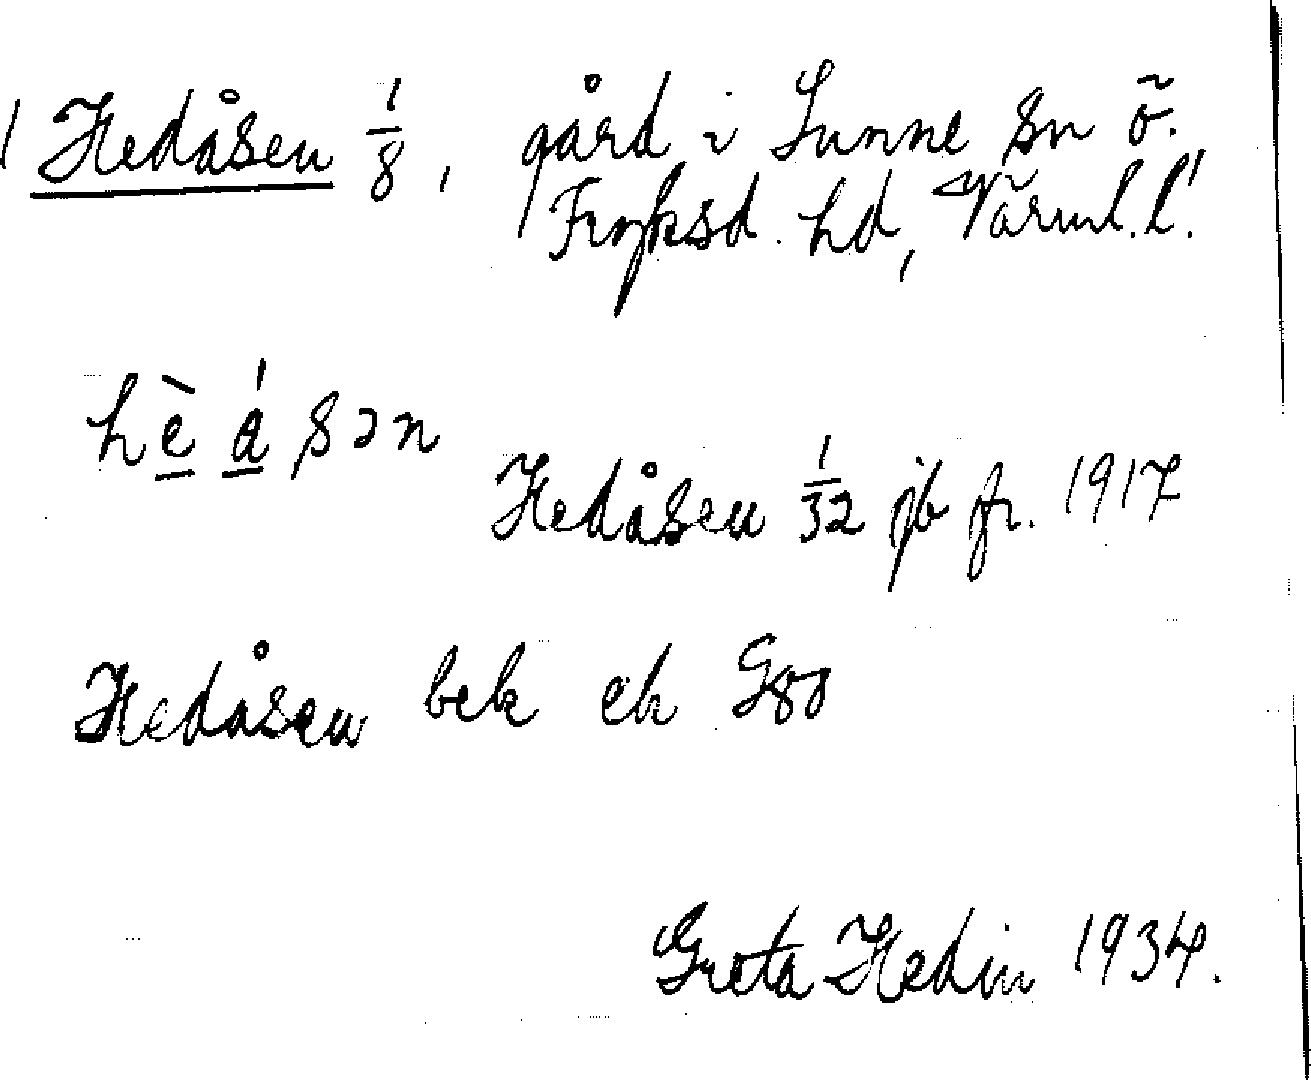 Hedåsen 1/8, gård i Sunne sn ö.
Fryksd. hd, Värml. l.
hè á sən
Hedåsen 1/32 jb fr. 1917
Hedåsen bek ek
Greta Hedin 1934.